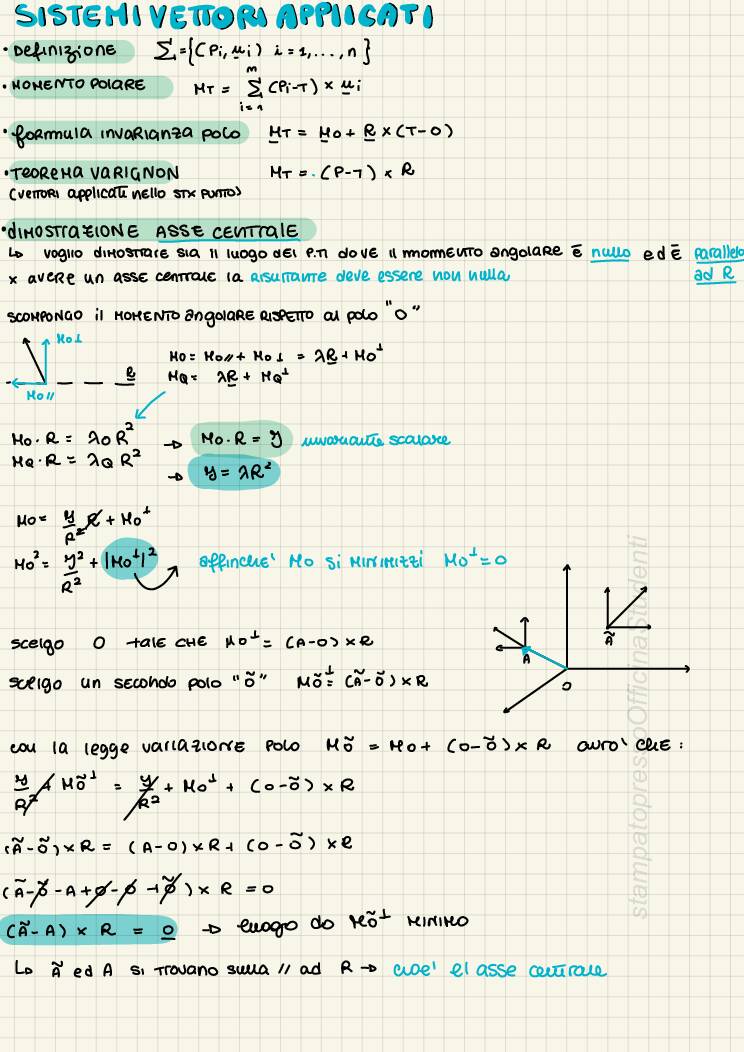 SISTEMI VETTORI APPLICATI
• DEFINIZIONE Σ={(Pi, ui) i=1,...,n}
• MOMENTO POLARE MT = Σ (Pi-T) × ui
m
i=1
• formula invarianza polo MT = MO + R × (T-O)
• TEOREMA VARIGNON MT = . (P-T) × R
(vettori applicati nello STX PUNTO)
• DIMOSTRAZIONE ASSE CENTRALE
↳ voglio dimostrare sia il luogo dei P.TI dove il momento angolare ē nullo ed ē parallelo ad R
x avere un asse centrale la RISULTANTE deve essere non nulla
SCOMPONGO il MOMENTO angolare RISPETTO al polo "O"
MO⊥
R
MO//
MO = MO// + MO⊥ = λR + MO⊥
MQ = λR + MQ⊥
MO · R = λO R² → MO · R = y invariante scalare
MQ · R = λQ R² → y = λR²
MO = y/R² R + MO⊥
MO² = y²/R² + |MO⊥|² affinche' MO si MINIMIZZI MO⊥ = 0
Ã
A
O
scelgo O tale CHE MO⊥ = (A-O) × R
scelgo un secondo polo "Õ" MÕ⊥ = (Ã-Õ) × R
con la legge variazione polo MÕ = MO + (O-Õ) × R avro' che :
y/R² + MÕ⊥ = y/R² + MO⊥ + (O-Õ) × R
(Ã-Õ) × R = (A-O) × R + (O-Õ) × R
(Ã-Õ-A+O-O+Õ) × R = 0
(Ã-A) × R = 0 → luogo do MÕ⊥ MINIMO
↳ Ã ed A si trovano sulla // ad R → cioe' el asse centrale
stampatopressoOfficinaStudenti